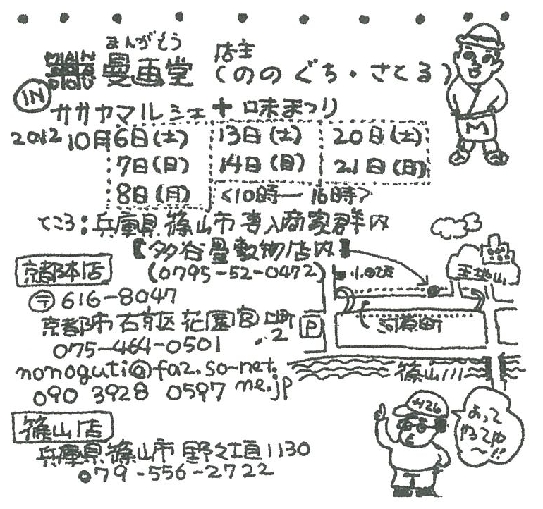 まんがどう
漫画堂
店主
(ののぐち・さとる)
IN
ササヤマルシェ+味まつり
2012 10月6日(土) 13日(土) 20日(土)
7日(日) 14日(日) 21日(日)
8日(月) <10時—16時>
ところ:兵庫県篠山市 商家群内
【多谷畳敷物店内】
(0795-52-0472)
京都本店
〒616-8047
京都市右京区花園宮ノ上町
.2
075-464-0501
nonoguti@fa2.so-net.
ne.jp
090 3928 0597
篠山店
兵庫県篠山市野々垣1130
079-556-2722
王地山
河原町
P
篠山川
M
よって
やってや
〜!!